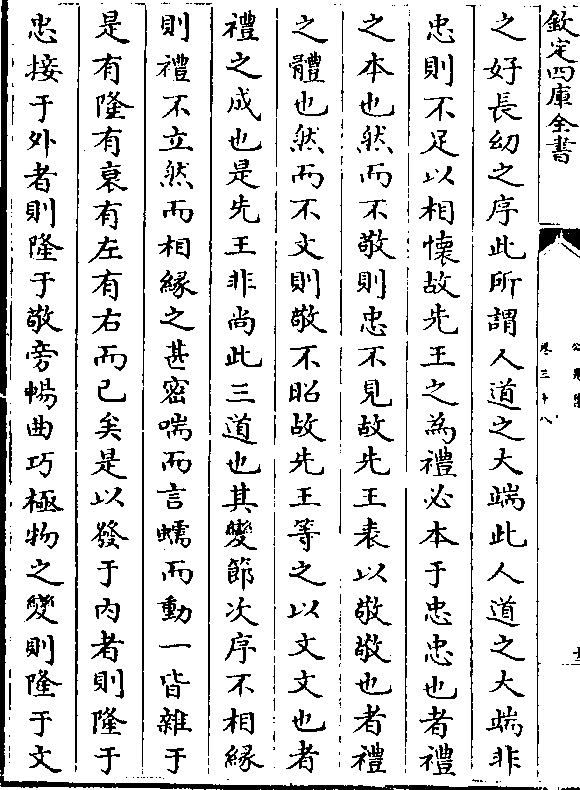 欽定四庫全書
卷三十八
之好長幼之序此所謂人道之大端此人道之大端非
忠則不足以相懷故先王之為禮必本于忠忠也者禮
之本也然而不敬則忠不見故先王表以敬敬也者禮
之體也然而不文則敬不昭故先王等之以文文也者
禮之成也是先王非尚此三道也其變節次序不相緣
則禮不立然而相緣之甚密喘而言蠕而動一皆雜于
是有隆有衰有左有右而已矣是以發于内者則隆于
忠接于外者則隆于敬旁暢曲巧極物之變則隆于文